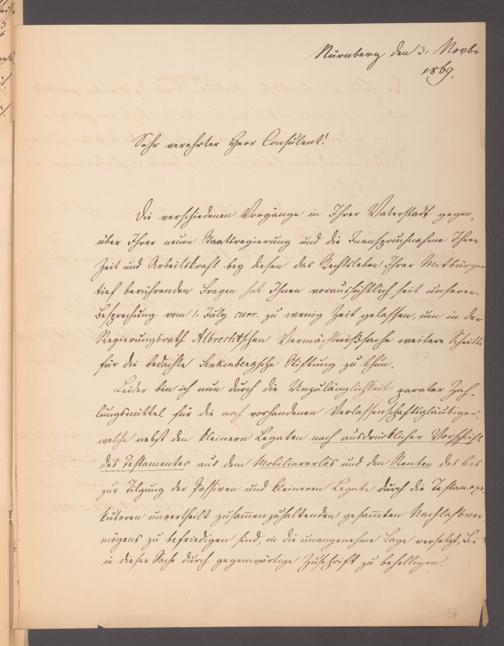 Nürnberg den 3. Novbr.
1869.
Sehr verehrter Herr Consulent!
Die verschiedenen Vorgänge in Ihrer Vaterstadt gegen-
über Ihrer neuen Staatsregierung und die Inanspruchnahme Ihrer
Zeit und Arbeitskraft bey diesen das Rechtsleben Ihrer Mitbürger
tief berührenden Fragen hat Ihnen voraussichtlich seit unserer
Besprechung vom 1. July curr. zu wenig Zeit gelassen, um in der
Regierungsrath Albrecht'schen Vermächtnißsache weitere Schritte
für die bedachte Senkenbergische Stiftung zu thun.
Leider bin ich nun durch die Unzulänglichkeit parater Zah-
lungsmittel für die noch vorhandenen Verlassenschaftsgläubiger,
welche nebst den kleinern Legaten nach ausdrücklicher Vorschrift
des Testamentes aus dem Mobiliarerlös und den Renten des bis
zur Tilgung der Passiven und kleinern Legate durch die Testamentsexe-
kutoren unvertheilt zusammenzuhaltenden gesammten Nachlaßver-
mögens zu befriedigen sind, in die unangenehme Lage versetzt, Sie
in dieser Sache durch gegenwärtige Zuschrift zu behelligen.
27